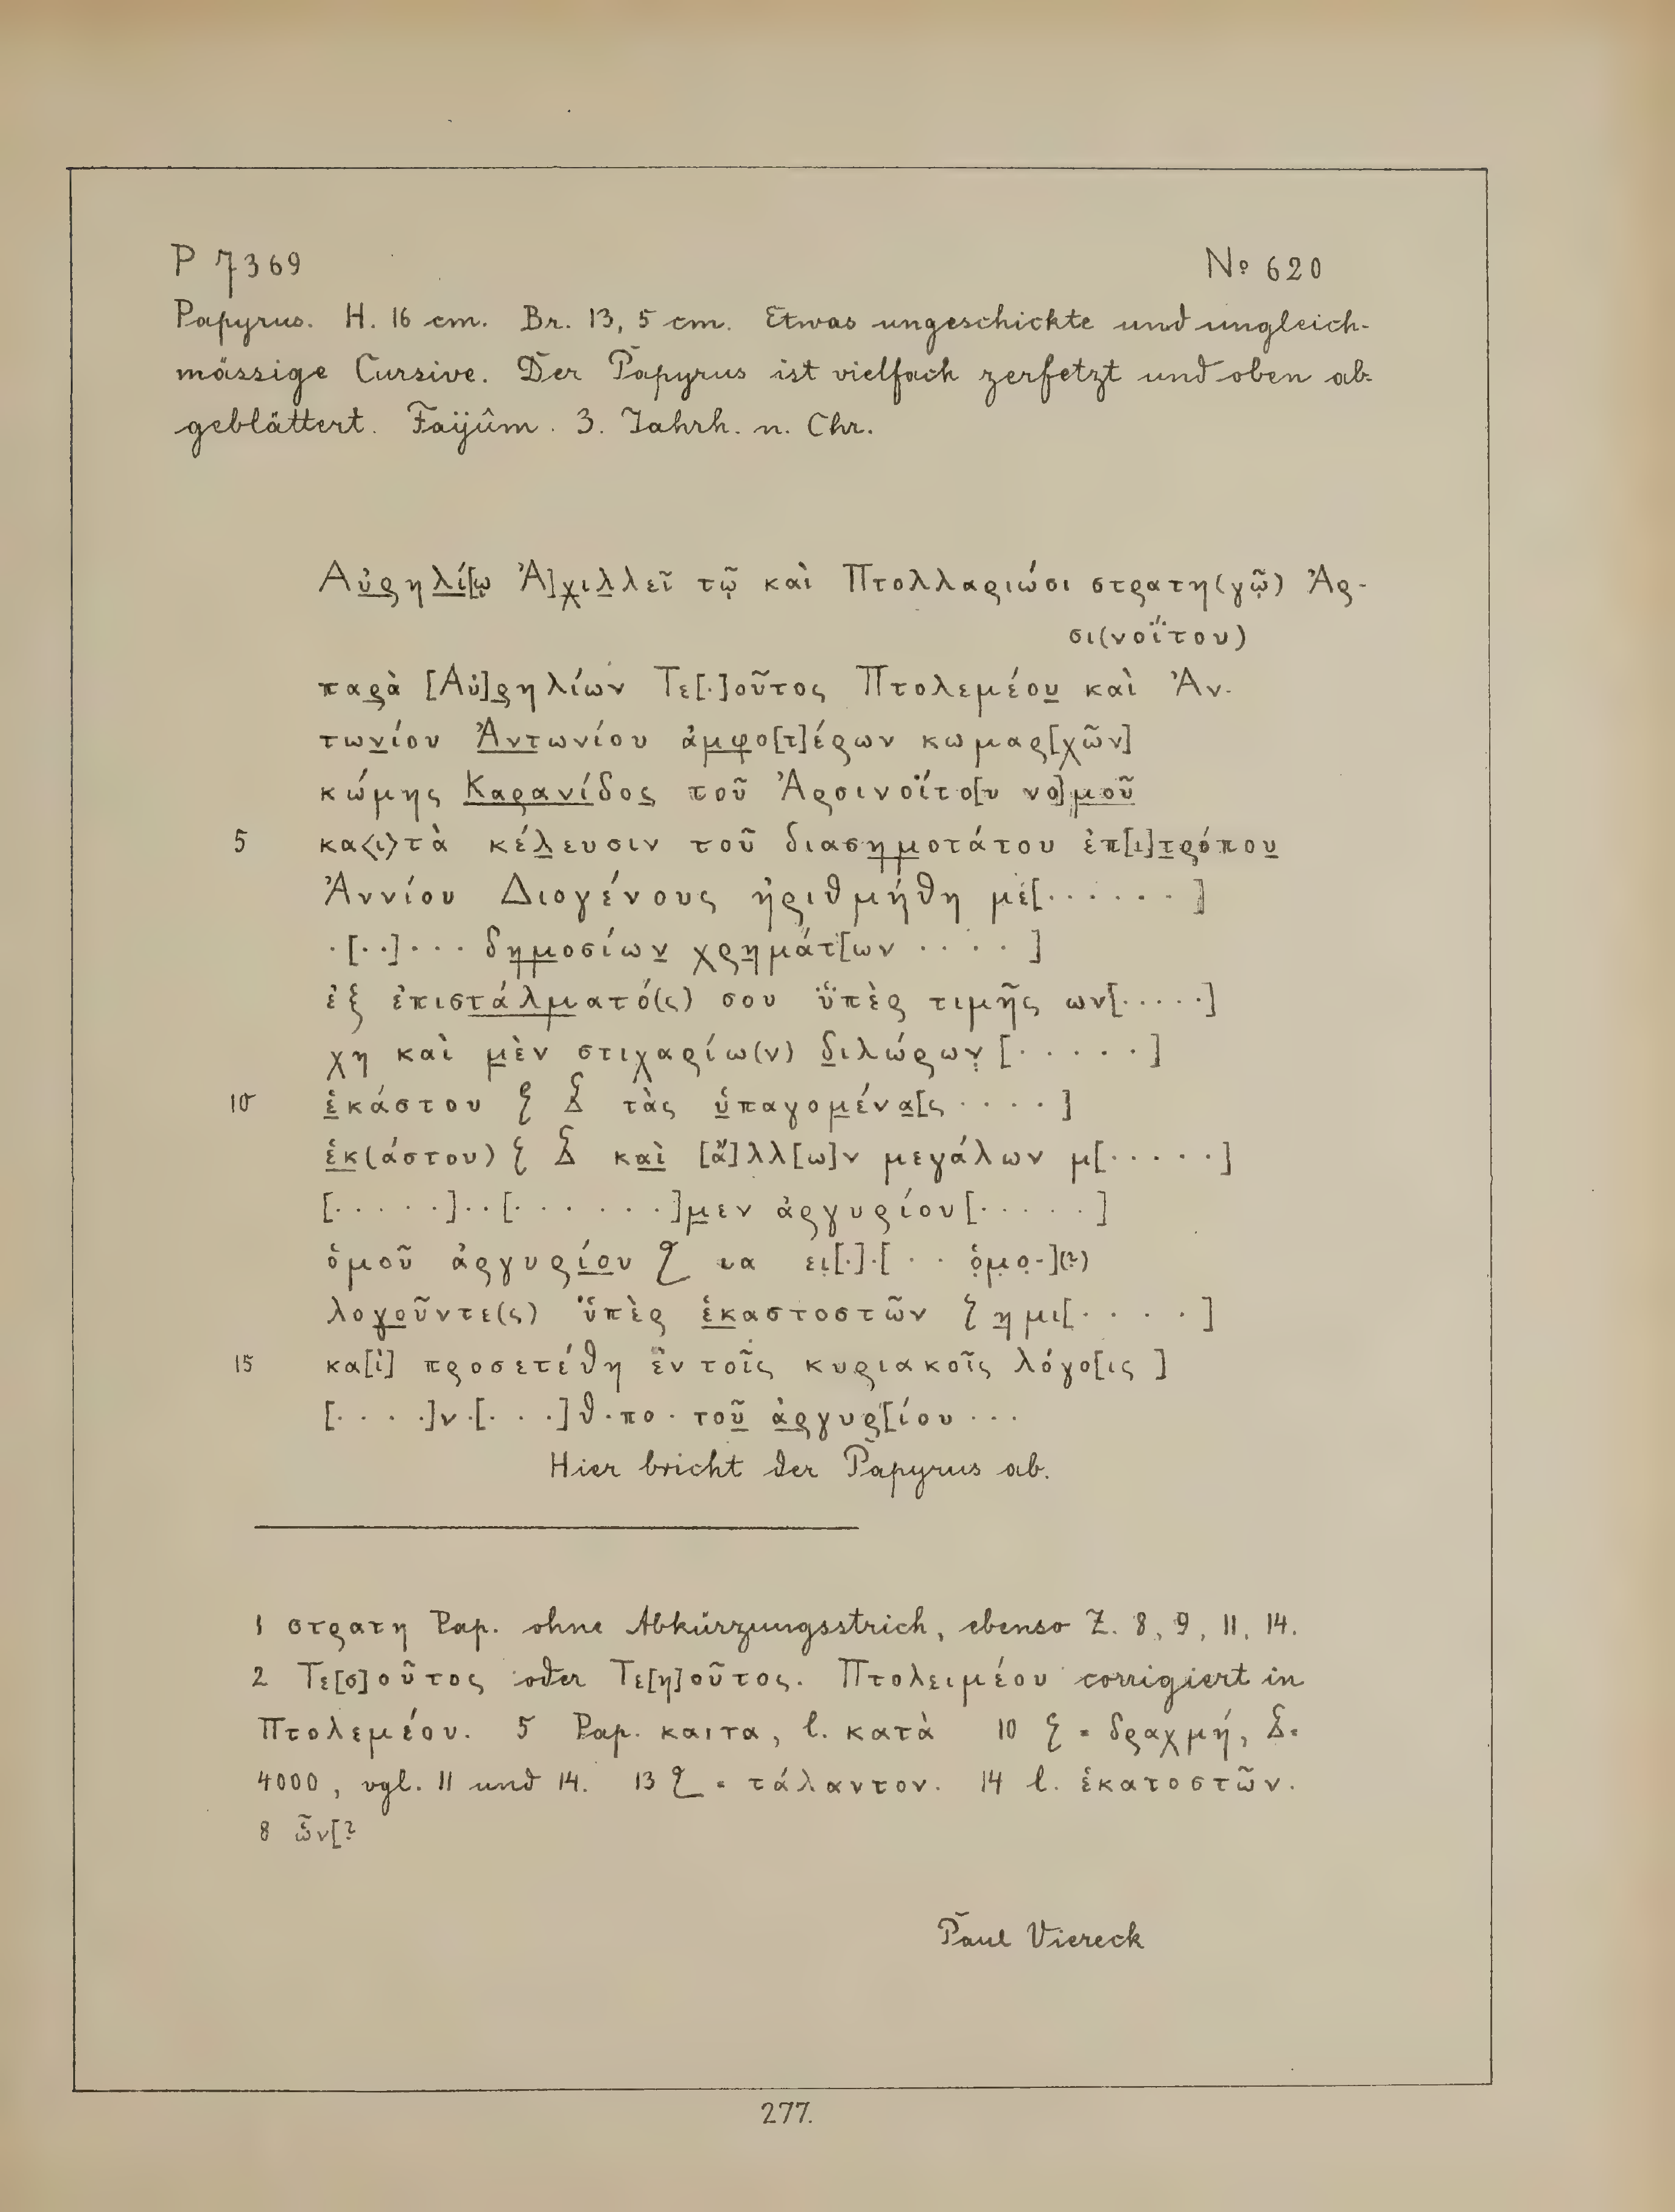 P 7369 No 620
Papyrus. H. 16 cm. Br. 13,5 cm. Etwas ungeschickte und ungleich-
mässige Cursive. Der Papyrus ist vielfach zerfetzt und oben ab-
geblättert. Faijûm. 3. Jahrh. n. Chr.
Αὐρηλί[ῳ Ἀ]χιλλεῖ τῷ καὶ Πτολλαριώσι στρατη(γῷ) Ἀρ-
σι(νοΐτου)
παρὰ [Αὐ]ρηλίων Τε[·]οῦτος Πτολεμέου καὶ Ἀν-
τωνίου Ἀντωνίου ἀμφο[τ]έρων κωμαρ[χῶν]
κώμης Καρανίδος τοῦ Ἀρσινοΐτο[υ νο]μοῦ
5 κα〈ι〉τὰ κέλευσιν τοῦ διασημοτάτου ἐπ[ι]τρόπου
Ἀννίου Διογένους ἠριθμήθη με[· · · · · ·]
·[··]··· δημοσίων χρημάτ[ων · · · ·]
ἐξ ἐπιστάλματό(ς) σου ὑ̈πὲρ τιμῆς ων[·····]
χη καὶ μὲν στιχαρίω(ν) διλώρων [· · · · ·]
10 ἑκάστου ξ Δ τὰς ὑπαγομένα[ς · · · ·]
ἑκ(άστου) ξ Δ καὶ [ἄ]λλ[ω]ν μεγάλων μ[· · · · ·]
[· · · · ·]··[· · · · · ·]μεν ἀργυρίου[· · · · ·]
ὁμοῦ ἀργυρίου ζ ια ει[·]·[· · ὁμο-](?)
λογοῦντε(ς) ὑ̈πὲρ ἑκαστοστῶν ξ η μι[· · · ·]
15 κα[ὶ] προσετέθη ἐν τοῖς κυριακοῖς λόγο[ις ]
[· · · ·]ν·[· · ·]θ·πο· τοῦ ἀργυρ[ίου ···
Hier bricht der Papyrus ab.
1 στρατη Pap. ohne Abkürzungsstrich, ebenso Z. 8, 9, 11, 14.
2 Τε[σ]οῦτος oder Τε[η]οῦτος. Πτολειμέου corrigiert in
Πτολεμέου. 5 Pap. καιτα, l. κατὰ 10 ξ = δραχμή, Δ =
4000, vgl. 11 und 14. 13 ζ = τάλαντον. 14 l. ἑκατοστῶν.
8 ὧν[?
Paul Viereck
277.